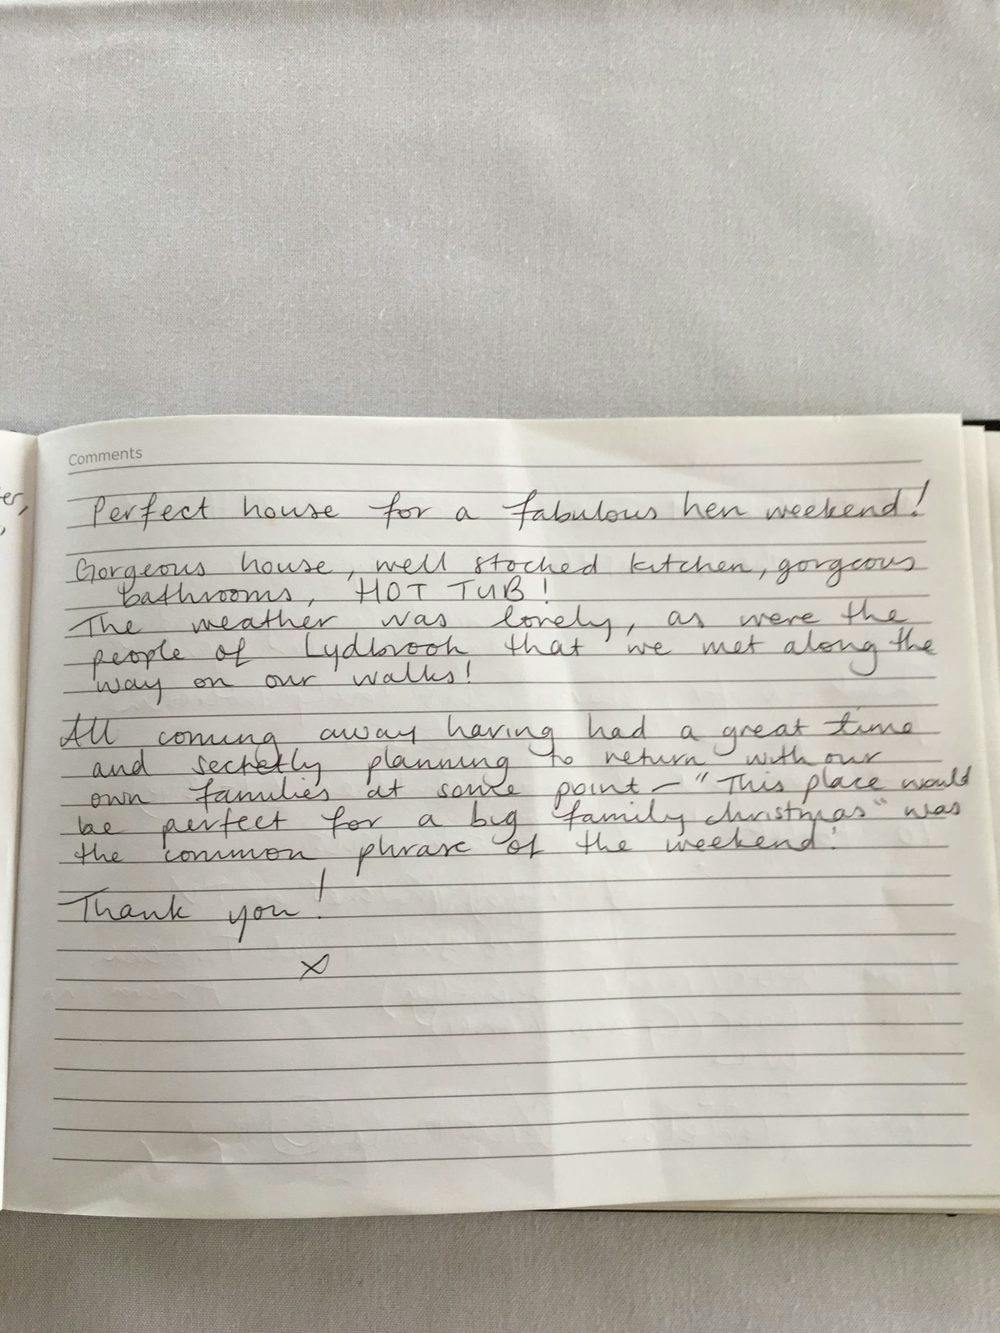 Comments
er,
Perfect house for a fabulous hen weekend!
Gorgeous house, well stocked kitchen, gorgeous
bathrooms, HOT TUB!
The weather was lovely, as were the
people of Lydbrook that we met along the
way on our walks!
All coming away having had a great time
and secretly planning to return with our
own families at some point - "This place would
be perfect for a big family christmas" was
the common phrase of the weekend!
Thank you!
x